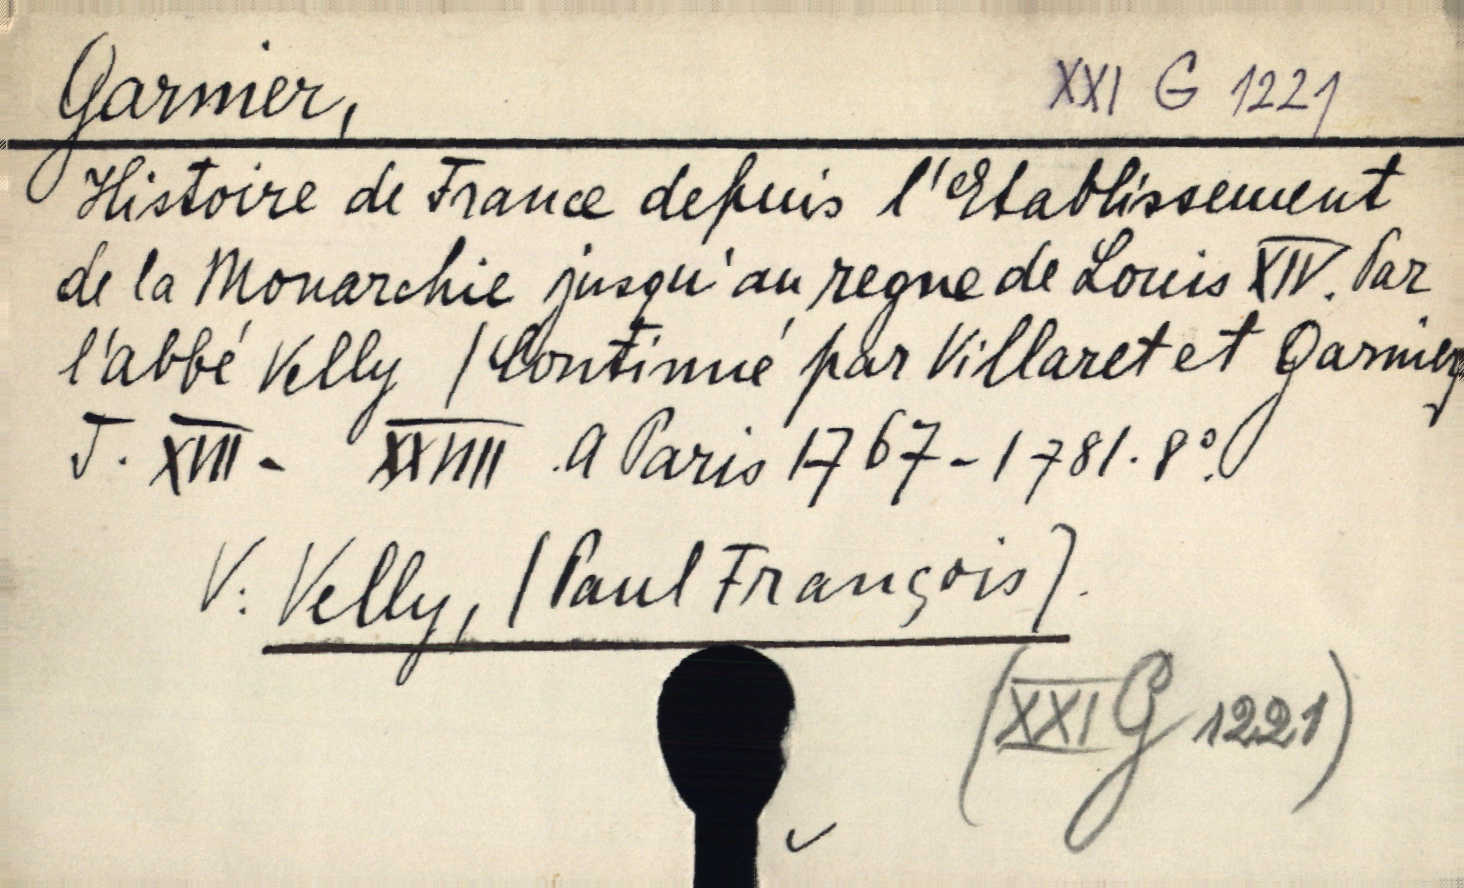 Garnier,
XXI G 1221
Histoire de France depuis l'Etablissement
de la Monarchie jusqu'au regne de Louis XIV. Par
l'abbé Velly (Continué par Villaret et Garnier)
T. XVIII - XXVIIII . A Paris 1767-1781. 8°.
V: Velly, (Paul François).
(XXI G 1221)